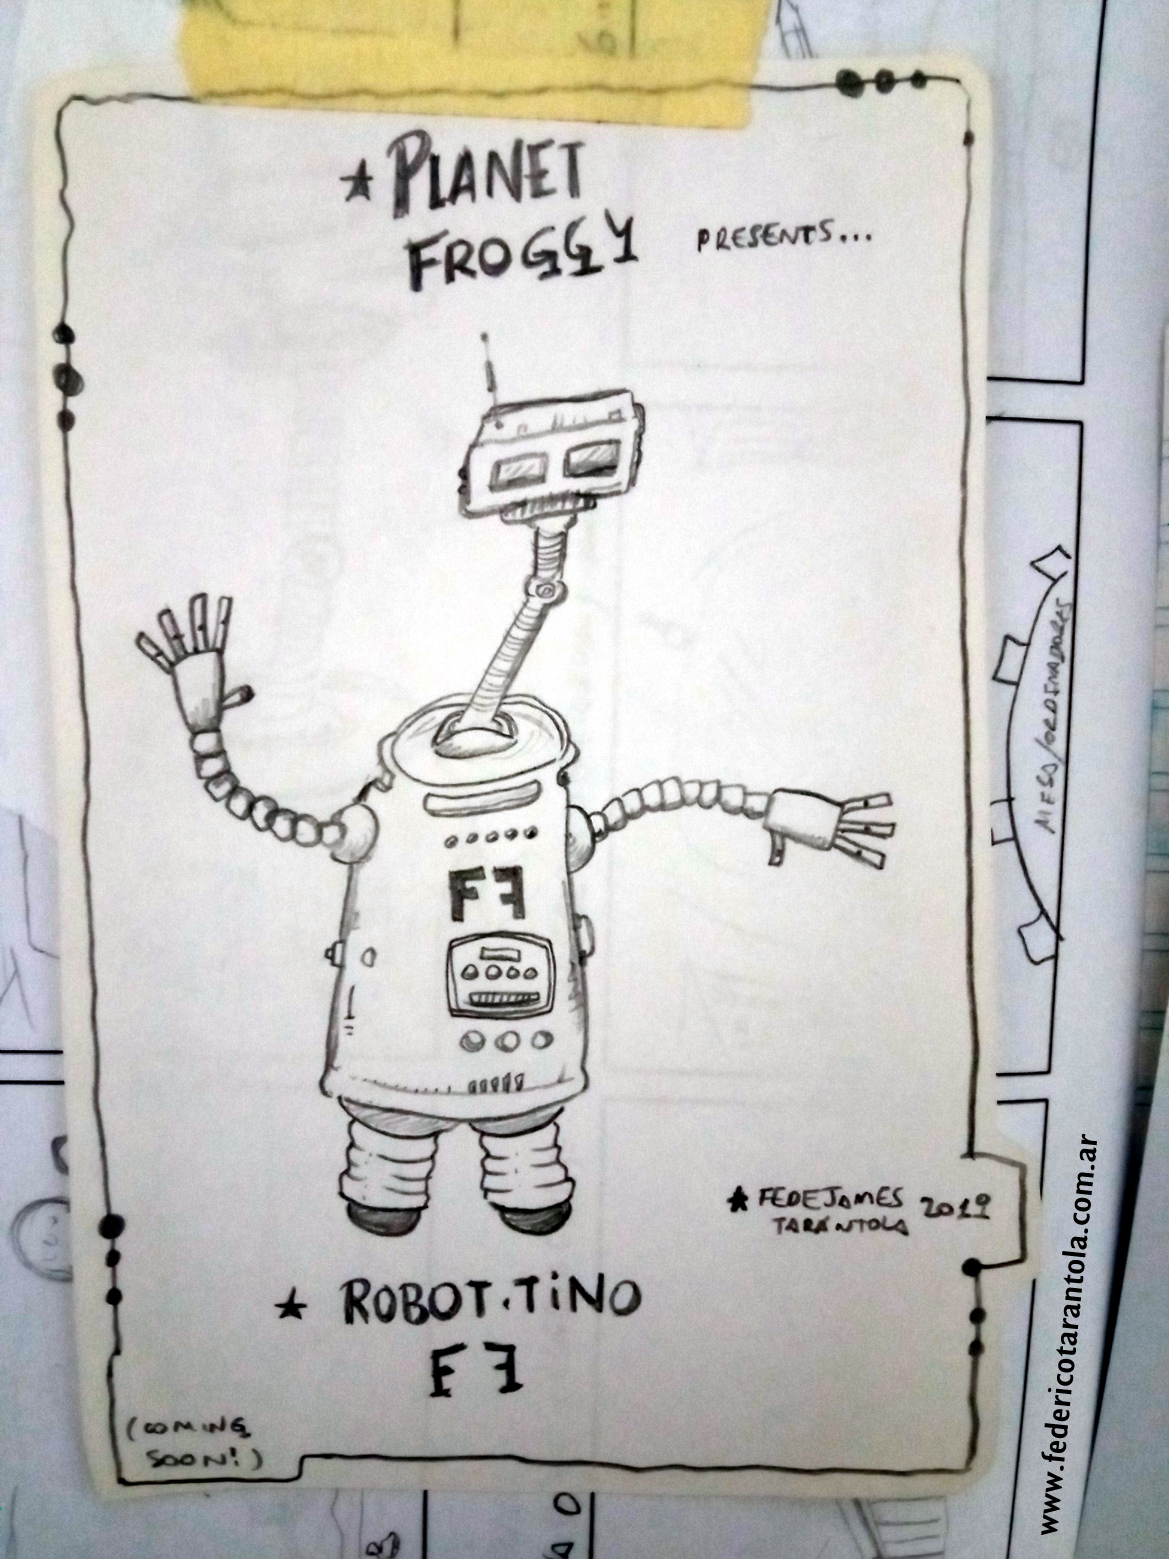 ★ PLANET
FROGGY PRESENTS...
FF
★ FEDEJAMES
TARÁNTOLA 2019
★ ROBOT.TINO
FF
(COMING
SOON!)
MESA/ORDENADORES
www.federicotarantola.com.ar